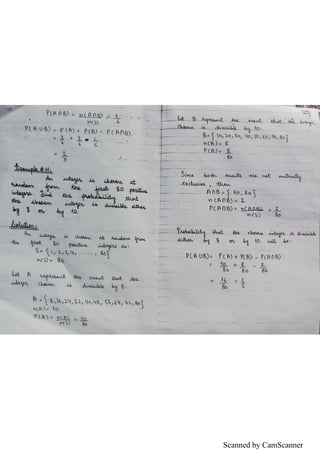 P(A∩B) = n(A∩B)/n(S) = 1/6
P(A∪B) = P(A) + P(B) - P(A∩B)
= 2/3
Example # 4:
An integer is chosen at
random from the first 80 positive
integers. Find the probability that
the chosen integer is divisible either
by 8 or by 10.
Solution:
An integer is chosen is random from
the first 80 positive integers as:
S = {1, 2, 3, 4, ..... 80}
n(S) = 80
Let A represent the event that the
integer chosen is divisible by 8:
A = {8, 16, 24, 32, 40, 48, 56, 64, 72, 80}
n(A) = 10
P(A) = n(A)/n(S) = 10/80
Let B represent the event that integer
chosen is divisible by 10:
B = {10, 20, 30, 40, 50, 60, 70, 80}
n(B) = 8
P(B) = 8/80
Since both events are not mutually
exclusive, then
A∩B = {40, 80}
n(A∩B) = 2
P(A∩B) = n(A∩B)/n(S) = 2/80
Probability that the chosen integer is divisible
either by 8 or by 10 will be:
P(A∪B) = P(A) + P(B) - P(A∩B)
= 10/80 + 8/80 - 2/80
= 16/80 = 1/5
Scanned by CamScanner